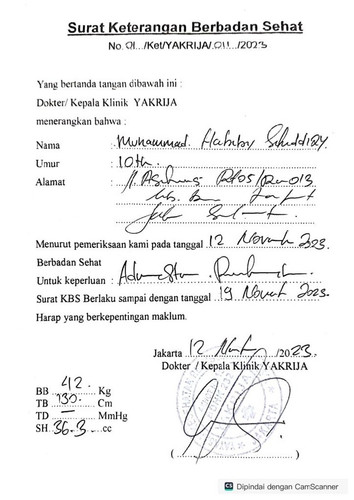 Surat Keterangan Berbadan Sehat
No. 01.../Ket/YAKRIJA/.011.../2023
Yang bertanda tangan dibawah ini :
Dokter/ Kepala Klinik YAKRIJA
menerangkan bahwa :
Nama : Muhammad. Habiby
Umur : 10 th.
Alamat : Rt05/Rw013
Menurut pemeriksaan kami pada tanggal 12 2023.
Berbadan Sehat
Untuk keperluan :
Surat KBS Berlaku sampai dengan tanggal 19 2023.
Harap yang berkepentingan maklum.
Jakarta 12 /2023.
Dokter / Kepala Klinik YAKRIJA
BB 42. Kg
TB 130. Cm
TD — MmHg
SH 36.3 cc
( )
CS Dipindai dengan CamScanner